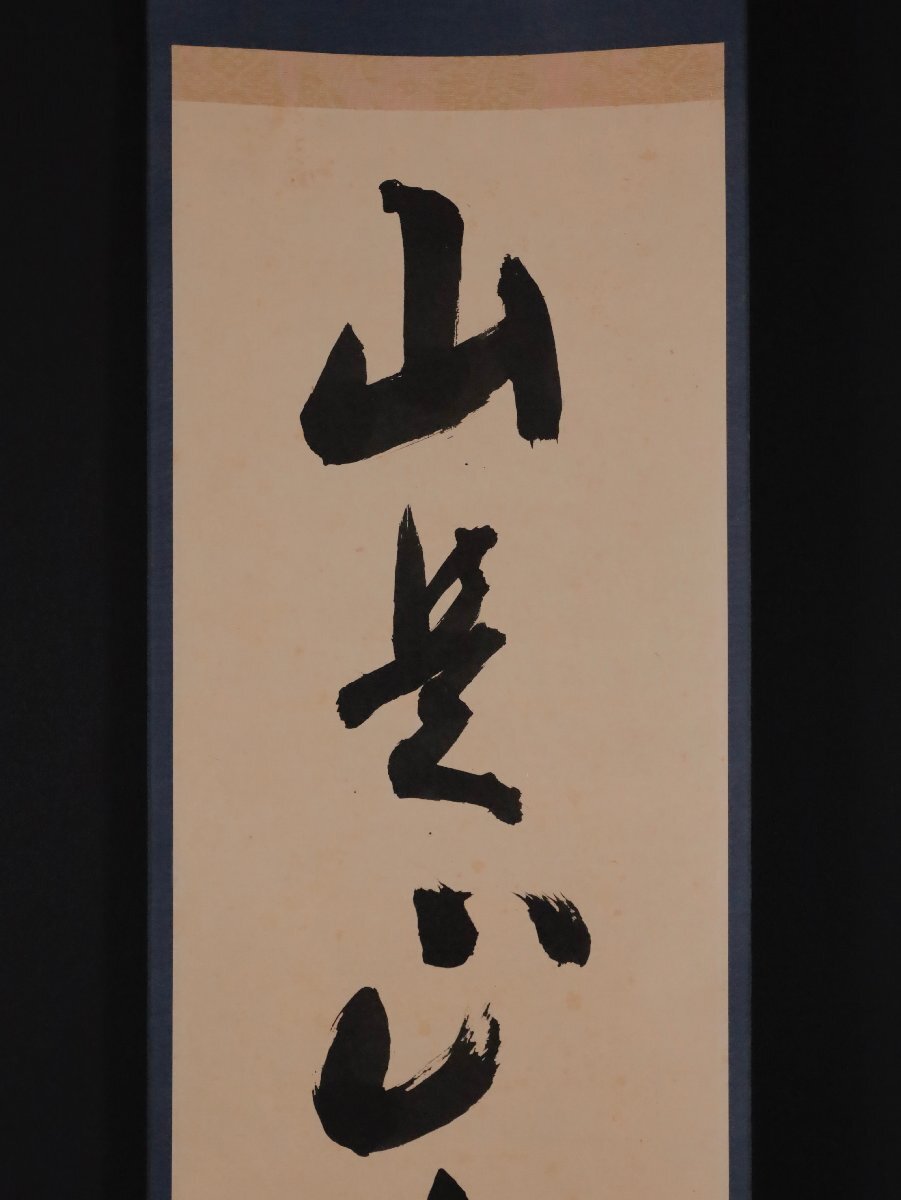 山是山